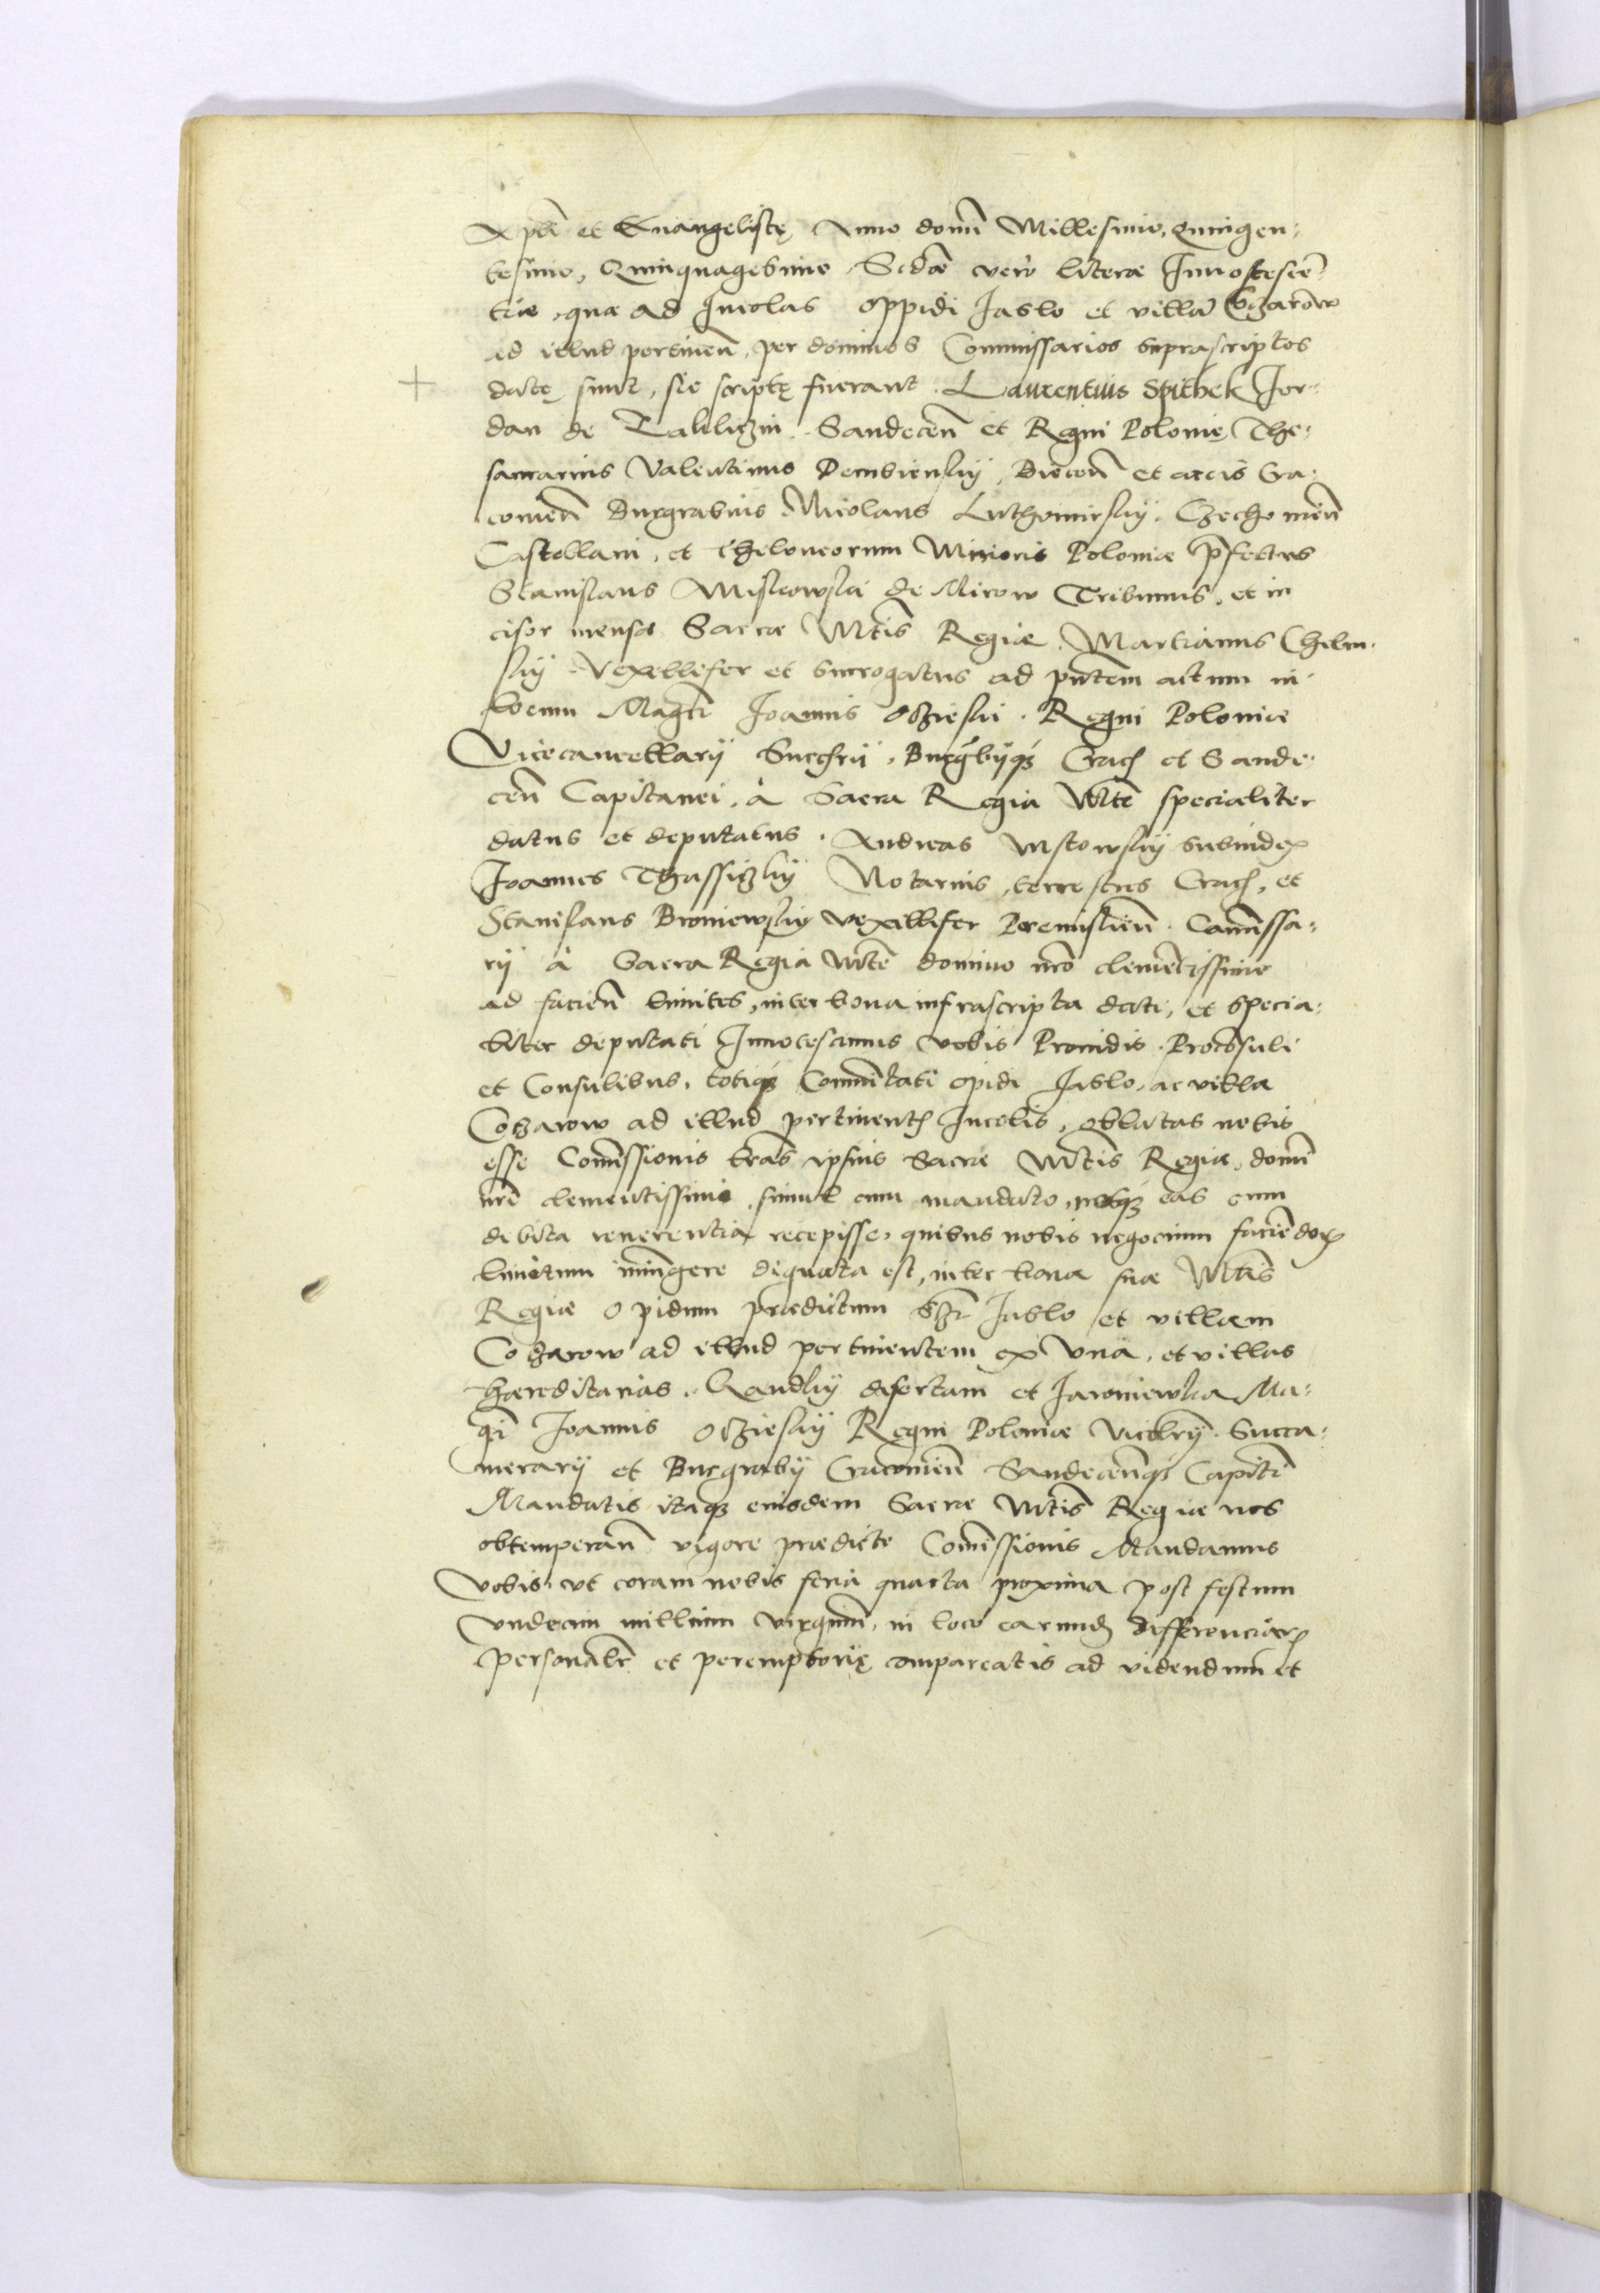 Apli et Euangelistę Anno domi Millesimo, Quingen:
tesimo, Quinquagesimo. Scdæ vero literæ Innotescē:
tiæ, quæ ad Incolas oppidi Jaslo et villæ Czarow
ad illud pertineñ, per dominos Commissarios suprascriptos
datę sunt, sic scriptę fuerant. Laurentius Spithek Jor:
dan de Zakliczin. Sandeceñ et Regni Polonię The:
saurarius Valentinus Dembienskij, Bieceñ et arcis Cra:
comieñ Burgrabius Nicolaus Luthomirskij. Czechomieñ
Castellani, et theloneorum Minoris Poloniæ p̄fectus
Stanislaus Miskowski de Mirow Tribunus, et in
cisor mensæ Sacræ Mtis Regiæ. Martianus Chelm:
skij Vexillifer et surrogatus ad pñtem actum in
locum Magci Joannis Oczieski. Regni Poloniæ
Vicecancellarij Succrij, Burgbijqȝ Crac et Sande:
ceñ Capitanei, à Sacra Regia Mte specialiter
datus et deputatus. Andreas Mstowskij Subiudex
Joannes Thassiczkij Notarius, terrestres Crac, et
Stanislaus Broniewskij vexillifer Premislieñ. Comissa:
rij à Sacra Regia Mte domino nro clemētissimo
ad facieñ limites, inter bona infrascripta dati, et specia:
liter deputati Innotescimus vobis Prouidis. Procōsuli
et Consulibus, totiqȝ Commītati opidi Jaslo, ac villæ
Cozarow ad illud pertinents Incolis, oblatas nobis
esse Comissionis lras ipsius Sacræ Mtis Regiæ, domi
nri clementissimi, simul cum mandato, nosqȝ eas cum
debita reuerentia recepisse, quibus nobis negocium faciēdorum
limitum iniungere dignata est, inter bona suæ Mtis
Regiæ Opidum prædictum Jaslo et villam
Cozarow ad illud pertinentem ex vna, et villas
hæreditarias, Kandlij desertam et Jaroniewka Ma:
gci Joannis Oczieskij Regni Poloniæ Vicecllrij Succa:
merarij et Burgrabij Cracomieñ Sandeceñqȝ Capitei
Mandatis itaqȝ eiusdem Sacræ Mtis Regiæ nos
obtemperañ vigore prædicte Comissionis Mandamus
vobis, vt coram nobis feria quarta proxima post festum
vndecim millium virginum, in loco earunde differenciarum
personalr et peremptorię compareatis ad videndum et